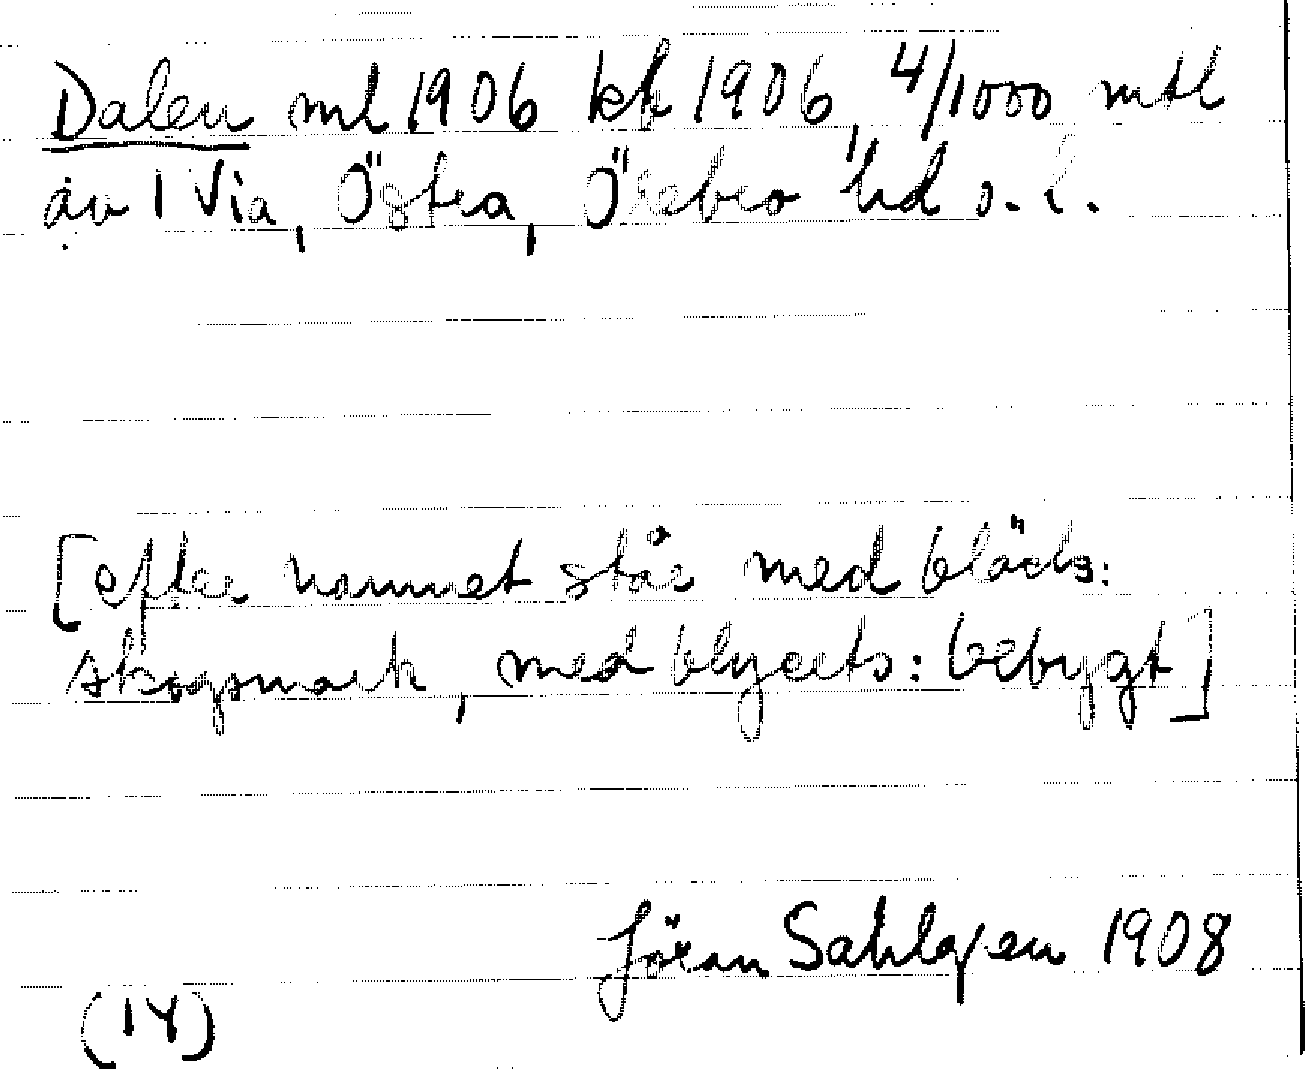 Dalen ml 1906 kk 1906, 4/1000 mtl
av 1 Via, Östra, Örebro hd o. l.
[efter namnet står med bläcks:
skogsmark, med blyerts: bebygt]
Jöran Sahlgren 1908
(14)